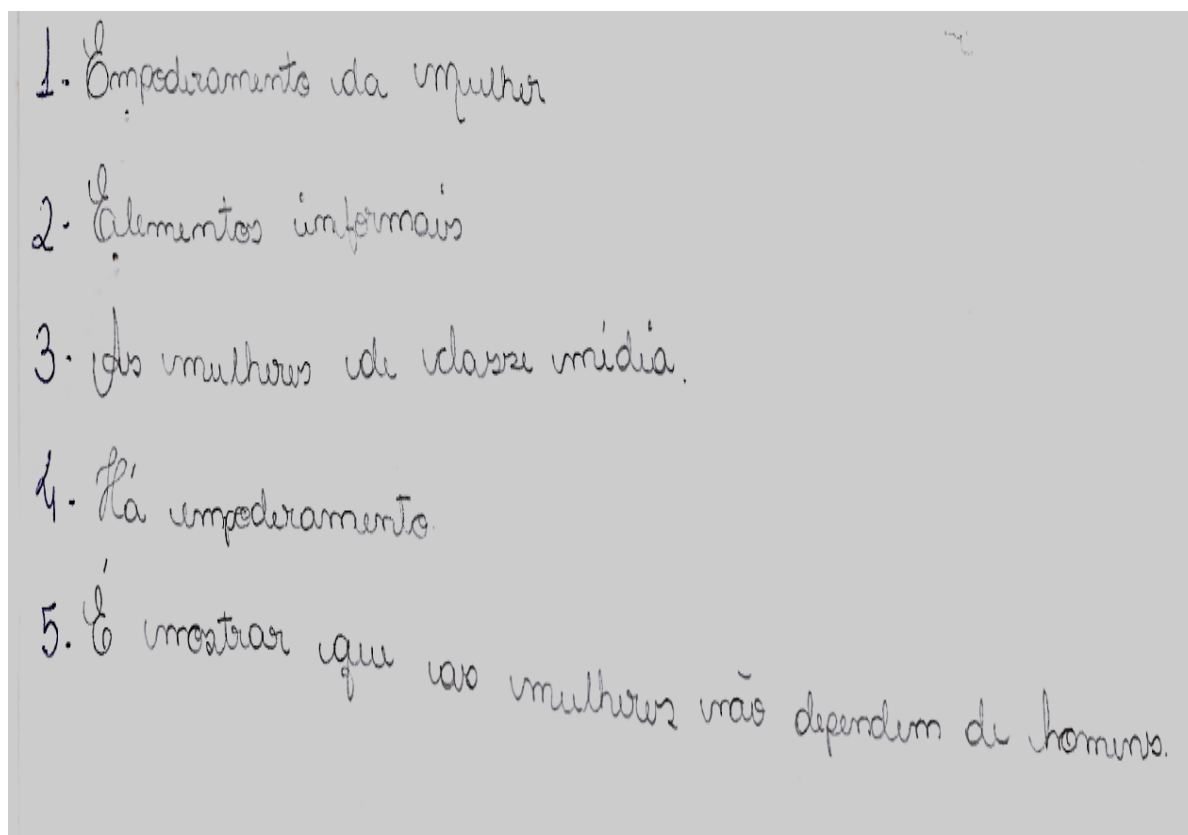 1- Empoderamento da mulher
2- Elementos informais
3- As mulheres de classe média.
4- Há empoderamento.
5. É mostrar que as mulheres não dependem de homens.